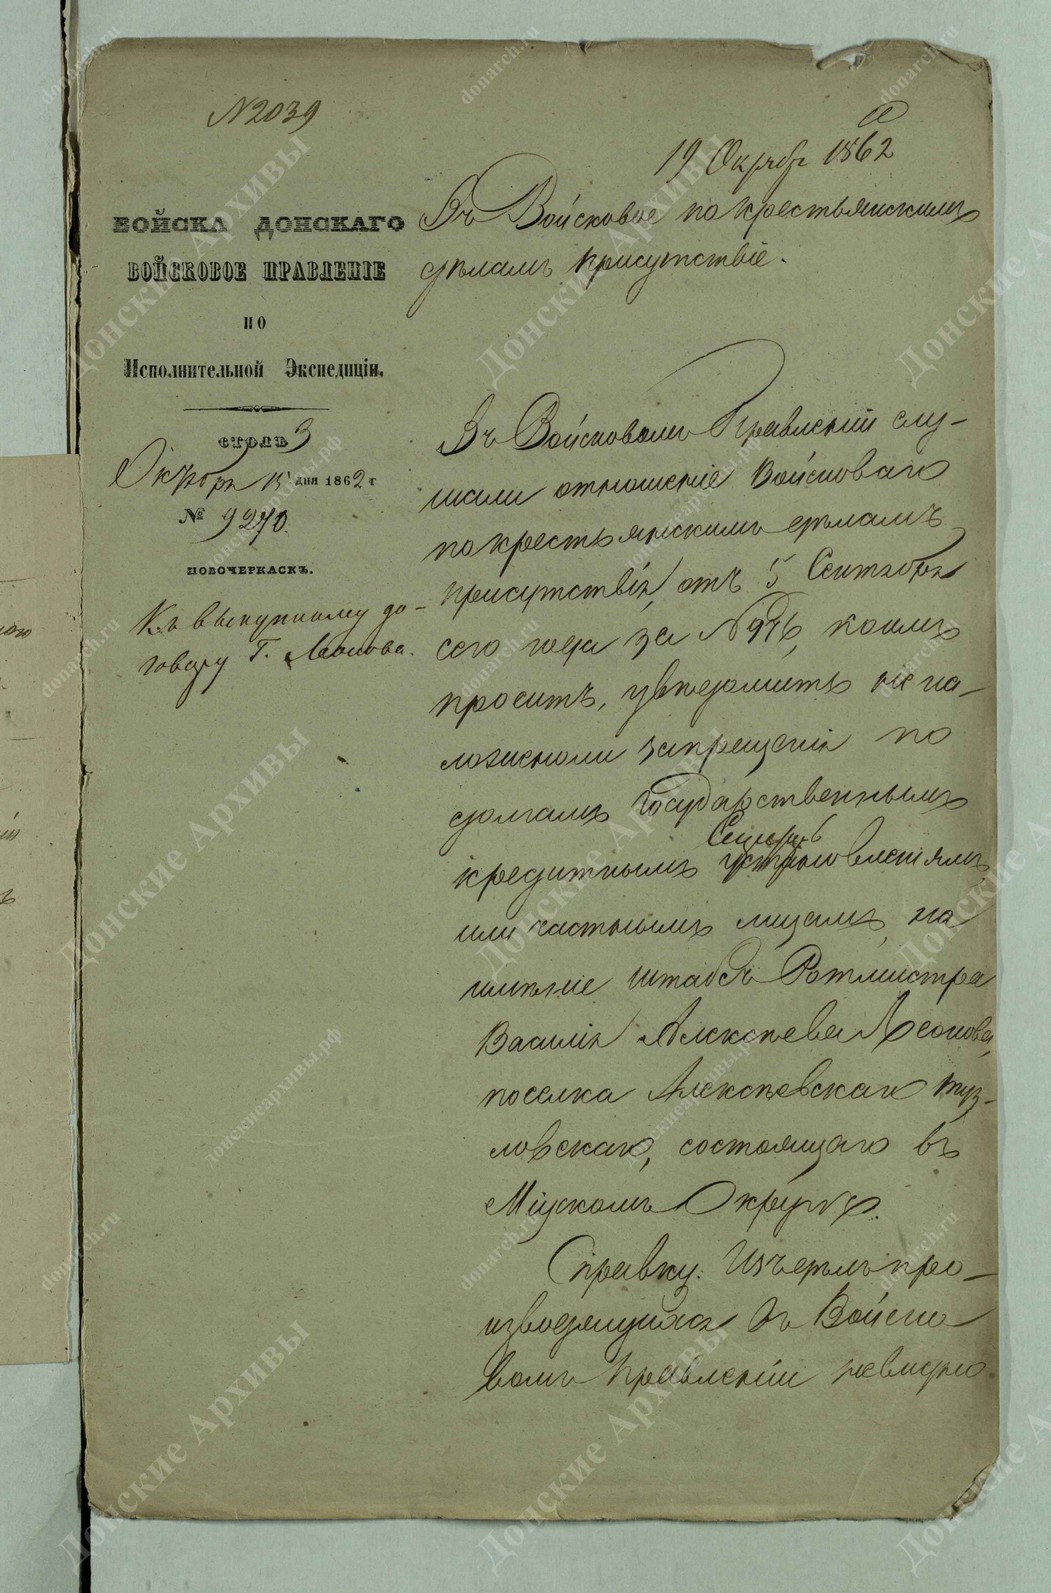 № 2039
19 Октября 1862
ВОЙСКА ДОНСКАГО
ВОЙСКОВОЕ ПРАВЛЕНІЕ
ПО
Исполнительной Экспедиціи.
СТОЛЪ 3
Октября 15 дня 1862 г
№ 9270.
НОВОЧЕРКАСКЪ.
Къ выкупному до-
говору Г. Леонова.
Въ Войсковое по крестьянскимъ
дѣламъ присутствіе.
Въ Войсковомъ Правленіи слу-
шали отношеніе Войсковаго
по крестьянскимъ дѣламъ
присутствія, отъ 5 Сентября
сего года за № коимъ
проситъ, увѣдомить не на-
ложено ли запрещенія по
долгамъ Государственнымъ
кредитнымъ установленіямъ,
или частнымъ лицамъ, на
имѣніе Штабсъ Ротмистра
Василія Алексѣева Леонова,
поселка Алексѣевскаго Туз-
ловскаго, состоящаго въ
Міускомъ Округѣ.
Справку: Изъ дѣлъ про-
изводящихся въ Войско
вомъ Правленіи не видно
Донские Архивы
donarch.ru
донскиеархивы.рф